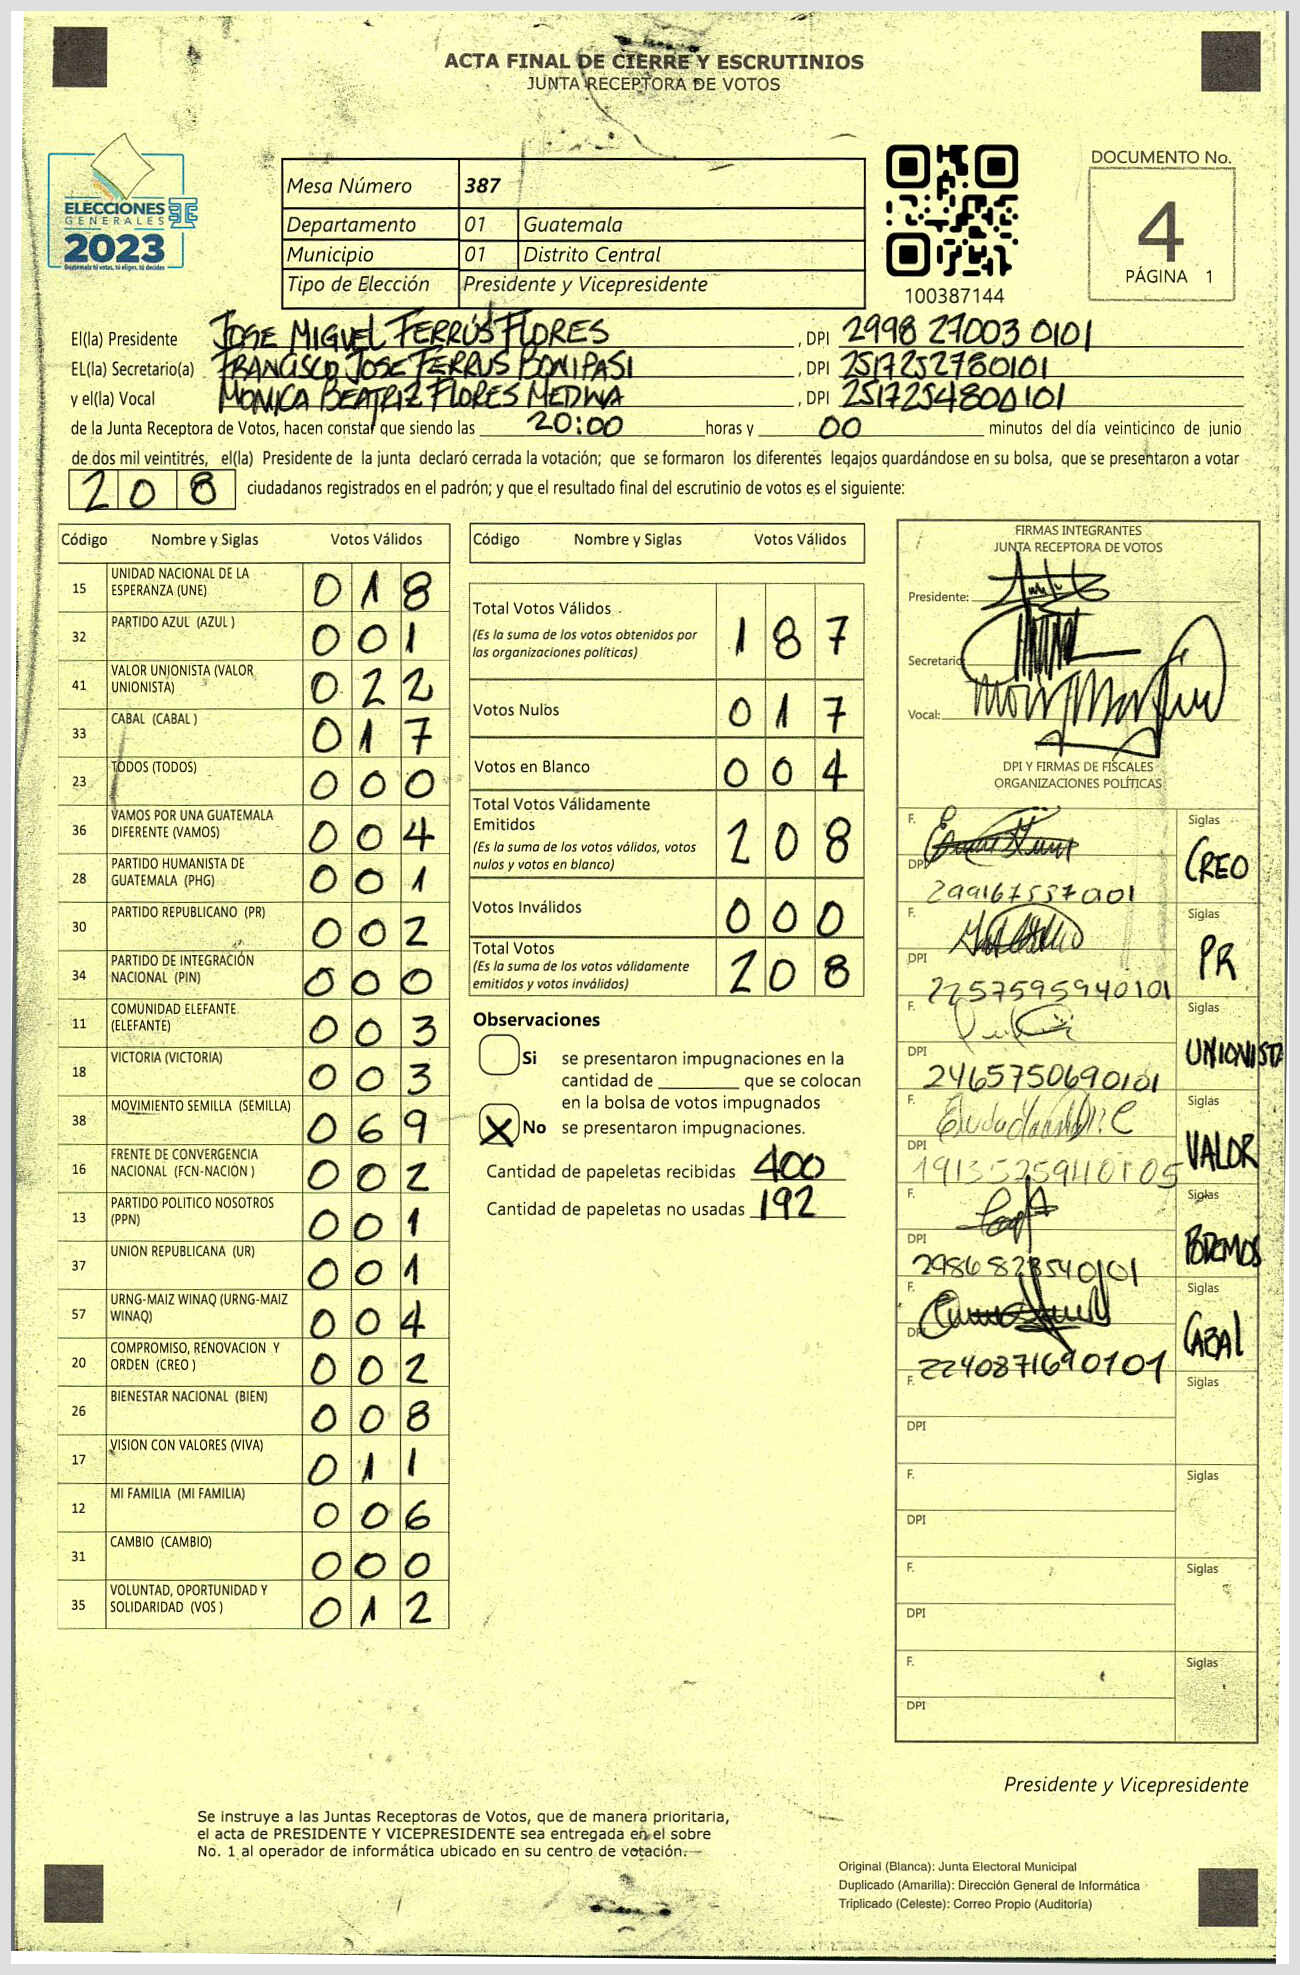 ACTA FINAL DE CIERRE Y ESCRUTINIOS
JUNTA RECEPTORA DE VOTOS
ELECCIONES
GENERALES
2023
Guatemala tú votas, tú eliges, tú decides
Mesa Número 387
Departamento 01 Guatemala
Municipio 01 Distrito Central
Tipo de Elección Presidente y Vicepresidente
100387144
DOCUMENTO No.
4
PÁGINA 1
El(la) Presidente JOSE MIGUEL FERRÚS FLORES, DPI 2998 27003 0101
EL(la) Secretario(a) FRANCISCO JOSE FERRUS BONIPASI, DPI 2517252780101
y el(la) Vocal MONICA BEATRIZ FLORES MEDINA, DPI 2517254800101
de la Junta Receptora de Votos, hacen constar que siendo las 20:00 horas y 00 minutos del día veinticinco de junio
de dos mil veintitrés, el(la) Presidente de la junta declaró cerrada la votación; que se formaron los diferentes legajos guardándose en su bolsa, que se presentaron a votar
208 ciudadanos registrados en el padrón; y que el resultado final del escrutinio de votos es el siguiente:
Código Nombre y Siglas Votos Válidos
15 UNIDAD NACIONAL DE LA ESPERANZA (UNE) 018
32 PARTIDO AZUL (AZUL ) 001
41 VALOR UNIONISTA (VALOR UNIONISTA) 022
33 CABAL (CABAL ) 017
23 TODOS (TODOS) 000
36 VAMOS POR UNA GUATEMALA DIFERENTE (VAMOS) 004
28 PARTIDO HUMANISTA DE GUATEMALA (PHG) 001
30 PARTIDO REPUBLICANO (PR) 002
34 PARTIDO DE INTEGRACIÓN NACIONAL (PIN) 000
11 COMUNIDAD ELEFANTE (ELEFANTE) 003
18 VICTORIA (VICTORIA) 003
38 MOVIMIENTO SEMILLA (SEMILLA) 069
16 FRENTE DE CONVERGENCIA NACIONAL (FCN-NACION ) 002
13 PARTIDO POLITICO NOSOTROS (PPN) 001
37 UNION REPUBLICANA (UR) 001
57 URNG-MAIZ WINAQ (URNG-MAIZ WINAQ) 004
20 COMPROMISO, RENOVACION Y ORDEN (CREO ) 002
26 BIENESTAR NACIONAL (BIEN) 008
17 VISION CON VALORES (VIVA) 011
12 MI FAMILIA (MI FAMILIA) 006
31 CAMBIO (CAMBIO) 000
35 VOLUNTAD, OPORTUNIDAD Y SOLIDARIDAD (VOS ) 012
Código Nombre y Siglas Votos Válidos
Total Votos Válidos 187
(Es la suma de los votos obtenidos por
las organizaciones políticas)
Votos Nulos 017
Votos en Blanco 004
Total Votos Válidamente
Emitidos 208
(Es la suma de los votos válidos, votos
nulos y votos en blanco)
Votos Inválidos 000
Total Votos 208
(Es la suma de los votos válidamente
emitidos y votos inválidos)
Observaciones
Si se presentaron impugnaciones en la
cantidad de ________ que se colocan
en la bolsa de votos impugnados
X No se presentaron impugnaciones.
Cantidad de papeletas recibidas 400
Cantidad de papeletas no usadas 192
FIRMAS INTEGRANTES
JUNTA RECEPTORA DE VOTOS
Presidente:
Secretario
Vocal:
DPI Y FIRMAS DE FISCALES
ORGANIZACIONES POLÍTICAS
F. Siglas CREO
DPI
F. Siglas PR
DPI 2257595940101
F. Siglas UNIONISTA
DPI 2465750690101
F. Siglas VALOR
DPI
F. Siglas PODEMOS
DPI
F. Siglas CABAL
DPI 2240871690101
F. Siglas
DPI
F. Siglas
DPI
F. Siglas
DPI
F. Siglas
DPI
Presidente y Vicepresidente
Se instruye a las Juntas Receptoras de Votos, que de manera prioritaria,
el acta de PRESIDENTE Y VICEPRESIDENTE sea entregada en el sobre
No. 1 al operador de informática ubicado en su centro de votación.
Original (Blanca): Junta Electoral Municipal
Duplicado (Amarilla): Dirección General de Informática
Triplicado (Celeste): Correo Propio (Auditoría)